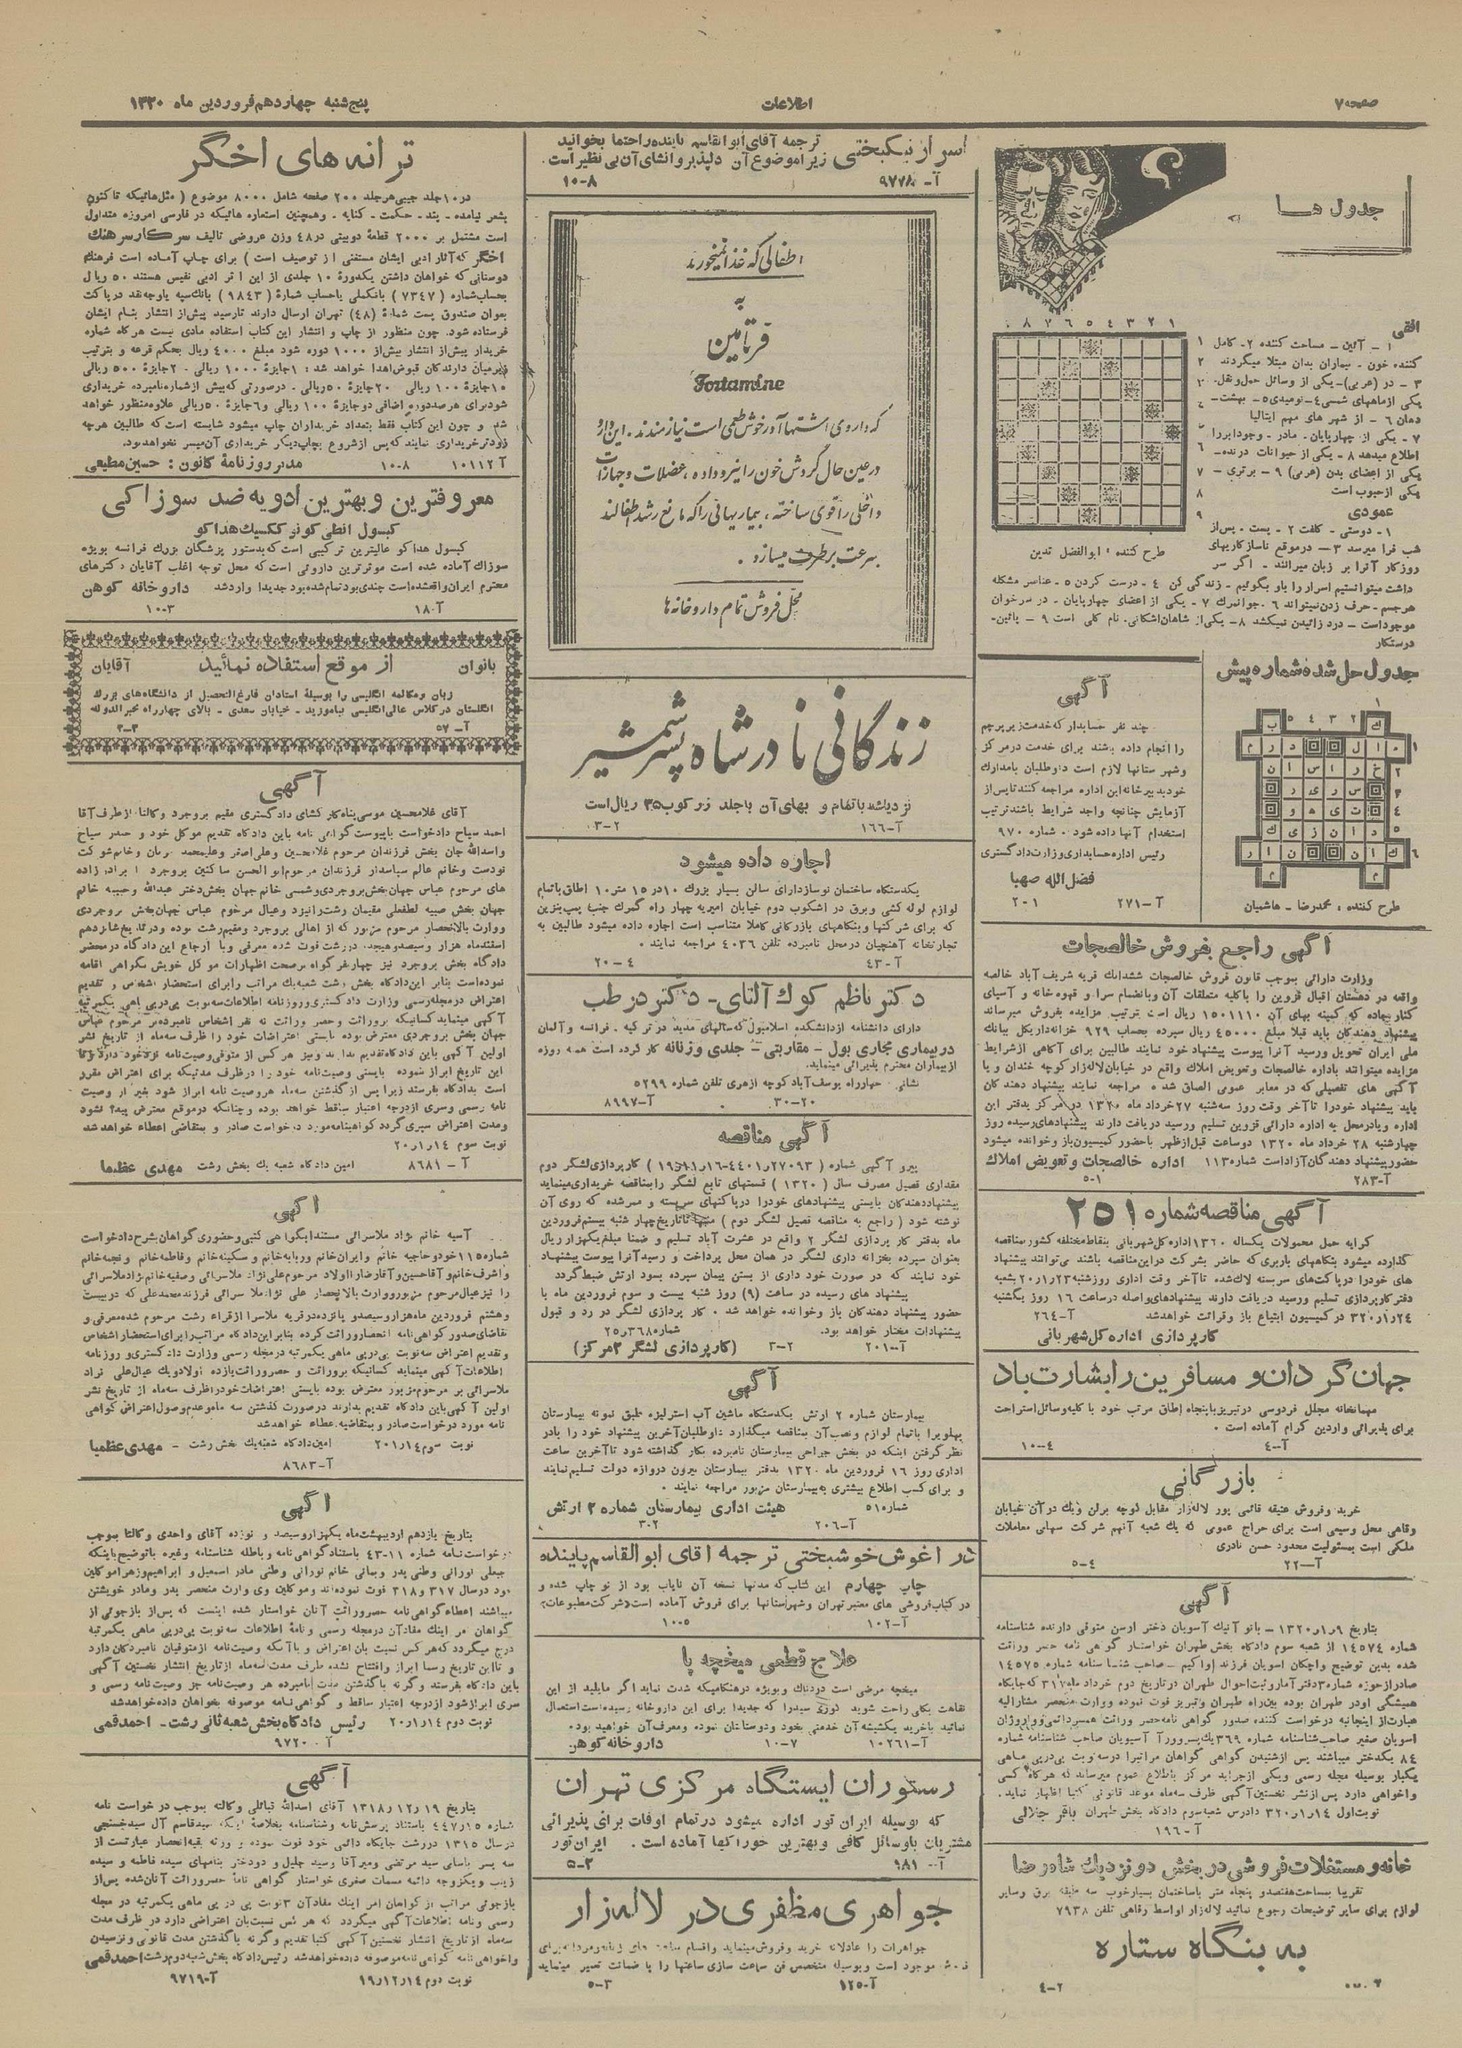 صفحه ۷
اطلاعات
پنج‌شنبه چهاردهم فروردین ماه ۱۳۲۰
جدول ها
افقی
۱ - آئین - مساحت کننده ۲- کامل
کننده خون - بیماران بدان مبتلا میگردند
۳ - در (عربی) - یکی از وسائل حمل و نقل.
یکی از ماههای شمسی ۴- نومیدی ۵- بهشت-
دهان ۶ - از شهر های مهم ایتالیا
۷ - یکی از چهارپایان. مادر - وجود ابر را
اطلاع میدهد ۸ - یکی از حیوانات درنده-
یکی از اعضای بدن (عربی) ۹ - برتری -
یکی از حبوب است
عمودی
۱- دوستی - کلفت ۲ - پست - پس از
شب فرا میرسد ۳ - در موقع ناسازکاریهای
روزگار آنرا بر زبان میرانند - اگر سر
داشت میتوانستیم اسرار را باو بگوئیم - زندگی کن ۴ - درست کردن ۵ - عناصر مشکله
هر جسم - حرف زدن نمیتواند ۶ - جوانمرك ۷ - یکی از اعضای چهارپایان - در سرخوان
موجود است - درد زائیدن نمیکشد ۸ - یکی از شاهان اشکانی. نام کلی است ۹ - پائین-
درستکار
طرح کننده : ابوالفضل تدین
جدول حل شده شماره پیش
طرح کننده : محمدرضا - هاشمیان
آگهی
چند نفر حسابدار که خدمت زیر پرچم
را انجام داده باشند برای خدمت در مرکز
و شهرستانها لازم است داوطلبان با مدارك
خود بدبیرخانه این اداره مراجعه کنند تا پس از
آزمایش چنانچه واجد شرایط باشند ترتیب
استخدام آنها داده شود. شماره ۹۷۰
رئیس اداره حسابداری وزارت دادگستری
فضل الله صهبا
آ-۲۷۱ ۲۰۱
آگهی راجع بفروش خالصجات
وزارت دارائی بموجب قانون فروش خالصجات ششدانك قریه شریف آباد خالصه
واقعه در دهستان اقبال قزوین را با کلیه متعلقات آن و بانضمام سرا و قهوه خانه و آسیای
کنار جاده که کمینه بهای آن ۱۵۰۱۱۱۰ ریال است بترتیب مزایده بفروش میرساند
پیشنهاد دهندگان باید قبلا مبلغ ۴۵۰۰۰ ریال سپرده بحساب ۹۲۹ خزانه داریکل ببانك
ملی ایران تحویل و رسید آنرا پیوست پیشنهاد خود نمایند طالبین برای آگاهی از شرایط
مزایده میتوانند باداره خالصجات و تعویض املاك واقع در خیابان لاله زار کوچه خندان و یا
آگهی های تفصیلی که در معابر عمومی الصاق شده مراجعه نمایند پیشنهاد دهندگان
باید پیشنهاد خود را تا آخر وقت روز سه شنبه ۲۷ خرداد ماه ۱۳۲۰ در مرکز بدفتر این
اداره و یا در محل به اداره دارائی قزوین تسلیم و رسید دریافت دارند پیشنهادهای رسیده روز
چهارشنبه ۲۸ خرداد ماه ۱۳۲۰ دو ساعت قبل از ظهر با حضور کمیسیون باز و خوانده میشود
حضور پیشنهاد دهندگان آزاد است شماره ۱۱۳ اداره خالصجات و تعویض املاك
آ-۲۸۳ ۵-۱
آگهی مناقصه شماره ۲۵۱
کرایه حمل محمولات یکساله ۱۳۲۰ اداره کل شهربانی بنقاط مختلفه کشور بمناقصه
گذارده میشود بنگاههای باربری که حاضر بشرکت در این مناقصه باشند می توانند پیشنهاد
های خود را در پاکت های سربسته لاك شده تا آخر وقت اداری روز شنبه ۲۰٫۱٫۲۳ بشعبه
دفتر کارپردازی تسلیم و رسید دریافت دارند پیشنهادهای واصله در ساعت ۱۶ روز یکشنبه
۳۲۰٫۱٫۲۴ در کمیسیون ابتیاع باز و قرائت خواهد شد آ-۲۶۴
کارپردازی اداره کل شهربانی
جهان گردان و مسافرین را بشارت باد
مهمانخانه مجلل فردوسی در تبریز با پنجاه اطاق مرتب خود با کلیه وسائل استراحت
برای پذیرائی واردین کرام آماده است.
آ-۴ ۱۰-۴
بازرگانی
خرید و فروش عتیقه قائمی پور لاله زار مقابل کوچه برلن و یك در آن خیابان
رفاهی محل وسیعی است برای حراج عمومی که یك شعبه آنهم شرکت سهامی معاملات
ملکی است بمسئولیت محدود حسن نادری
آ-۲۲ ۵-۴
آگهی
بتاریخ ۱۳۲۰٫۱٫۹ - بانو آنیك آسویان دختر ارسن متوقی دارنده شناسنامه
شماره ۱۴۵۷۴ از شعبه سوم دادگاه بخش طهران خواستار گوهی نامه حصر وراثت
شده بدین توضیح واچکان اسویان فرزند اواکیم - صاحب شناسنامه شماره ۱۴۵۷۵
صادر از حوزه ۳ دفتر آمار و ثبت احوال طهران در تاریخ دوم خرداد ماه ۳۱۷ که جایگاه
همیشگی او در طهران بوده بین راه طهران و تبریز فوت نموده و وارث منحصر مشارالیه
عبارت از اینجانبه درخواست کننده صدور گواهی نامه حصر وراثت همسر دائمی و واروژان
اسویان صغیر صاحب شناسنامه شماره ۳۶۹ یك پسر و ورآ آسویان صاحب شناسنامه شماره
۸۴ یکدختر میباشند پس از شنیدن گواهی گواهان مراتب را در سه نوبت پی در پی ماهی
یکبار بوسیله مجله رسمی و یکی از جراید مرکز باطلاع عموم میرساند که هر گاه کسی
واخواهی دارد پس از نشر نخستین آگهی ظرف سه ماه موعد قانونی کتبا اظهار نماید.
نوبت اول ۳۲۰٫۱٫۱۴ دادرس شعبه سوم دادگاه بخش طهران باقر جلالی
آ-۱۹۶
خانه و مستغلات فروشی در بخش دو نزدیك شاه رضا
تقریبا بمساحت هفتصد و پنجاه متر با ساختمان بسیار خوب سه طبقه برق و سایر
لوازم برای سایر توضیحات رجوع نمائید لاله زار اواسط رفاهی تلفن ۷۹۳۸
به بنگاه ستاره
۴-۲
اسرار نیکبختی ترجمه آقای ابوالقاسم پاینده را حتما بخوانید
زیرا موضوع آن دلپذیر و انشای آن بی نظیر است.
آ-۹۷۷۸ ۱۰-۸
اطفالی که غذا نمیخورند
به
فرتامین
Fortamine
که داروی اشتها آور خوش طعمی است نیازمندند. این دارو
در عین حال گردش خون را نیرو داده، عضلات و جهازات
داخلی را قوی ساخته، بیماریهائی را که مانع رشد اطفالند
بسرعت برطرف میسازد.
محل فروش تمام داروخانه ها
زندگانی نادرشاه پسر شمشیر
نزدیك شد با تمام و بهای آن با جلد زرکوب ۳۵ ریال است
آ-۱۶۶ ۳-۲
اجاره داده میشود
یکدستگاه ساختمان نوساز دارای سالن بسیار بزرك ۱۰ در ۱۵ متر ۱۰ اطاق با تمام
لوازم لوله کشی و برق در اشکوب دوم خیابان امیریه چهار راه گمرك جنب پمپ بنزین
که برای شرکتها و بنگاههای بازرگانی کاملا متناسب است اجاره داده میشود طالبین به
تجارتخانه آهنچیان در محل نامبرده تلفن ۴۰۳۶ مراجعه نمایند.
آ-۴۳ ۲۰-۴
دکتر ناظم كوك آلتای - دکتر در طب
دارای دانشنامه از دانشکده اسلامبول که سالهای مدید در ترکیه - فرانسه و آلمان
در بیماری مجاری بول - مقاربتی - جلدی و زنانه کار کرده است همه روزه
از بیماران محترم پذیرائی مینماید.
نشانی چهارراه یوسف آباد کوچه ازهری تلفن شماره ۵۲۹۹
۳۰-۲۰ آ-۸۹۹۷
آگهی مناقصه
پیرو آگهی شماره کارپردازی لشگر دوم
مقداری فصیل مصرف سال (۱۳۲۰) قسمتهای تابع لشگر را بمناقصه خریداری مینماید
پیشنهاد دهندگان بایستی پیشنهادهای خود را در پاکتهای سربسته و ممر شده که روی آن
نوشته شود (راجع به مناقصه فصیل لشگر دوم) منتها تا تاریخ چهار شنبه بیستم فروردین
ماه بدفتر کارپردازی لشگر ۲ واقع در عشرت آباد تسلیم و ضمنا مبلغ یکهزار ریال
بعنوان سپرده بخزانه داری لشگر در همان محل پرداخت و رسید آنرا پیوست پیشنهاد
خود نمایند که در صورت خود داری از بستن پیمان سپرده بسود ارتش ضبط گردد
پیشنهاد های رسیده در ساعت (۹) روز شنبه بیست و سوم فروردین ماه با
حضور پیشنهاد دهندگان باز و خوانده خواهد شد. کارپردازی لشگر در رد و قبول
پیشنهادات مختار خواهد بود. شماره
آ-۲۰۱ ۳-۲ (کارپردازی لشگر ۲ مرکز)
آگهی
بیمارستان شماره ۲ ارتش یکدستگاه ماشین آب استرلیزه مطبق نمونه بیمارستان
پهلوی را با تمام لوازم و نصب آن بمناقصه میگذارد داوطلبان آخرین پیشنهاد خود را با در
نظر گرفتن اینکه در بخش جراحی بیمارستان نامبرده بکار گذاشته شود تا آخرین ساعت
اداری روز ۱۶ فروردین ماه ۱۳۲۰ بدفتر بیمارستان بیرون دروازه دولت تسلیم نمایند
و برای کسب اطلاع بیشتری به بیمارستان مزبور مراجعه نمایند.
شماره ۵۱ هیئت اداری بیمارستان شماره ۲ ارتش
آ-۲۰۶ ۳-۲
در آغوش خوشبختی ترجمه آقای ابوالقاسم پاینده
چاپ چهارم این کتاب که مدتها نسخه آن نایاب بود از نو چاپ شده و
در کتابفروشی های معتبر تهران و شهرستانها برای فروش آماده است «شرکت مطبوعات»
آ-۱۰۲ ۱۰-۵
علاج قطعی میخچه پا
میخچه مرضی است دردناك و بویژه در هنگامیکه شدت نماید اگر مایلید از این
نقاهت بکلی راحت شوید سیدرا که جدیدا برای این داروخانه رسیده است استعمال
نمائید با خرید یکشیشه آن خدمتی بخود و دوستانتان نموده و معرف آن خواهید بود.
آ-۱۰۲۶۱ ۱۰-۷ داروخانه گوهر
رستوران ایستگاه مرکزی تهران
که بوسیله ایران تور اداره میشود در تمام اوقات برای پذیرائی
مشتریان با وسائل کافی و بهترین خوراکها آماده است. ایران تور
آ-۹۸۱ ۵-۳
جواهری مظفری در لاله زار
جواهرات را عادلانه خرید و فروش مینماید و اقسام
فروش موجود است و بوسیله متخصص فن ساعت سازی ساعتها را با ضمانت تعمیر مینماید
آ-۱۲۵ ۵-۳
ترانه های اخگر
در ۱۰ جلد جیبی هر جلد ۲۰۰ صفحه شامل ۸۰۰۰ موضوع (مثل هائیکه تا کنون
بشعر نیامده - پند - حکمت - کنایه - و همچنین استعاره هائیکه در فارسی امروزه متداول
است مشتمل بر ۲۰۰۰ قطعه دوبیتی در ۴۸ وزن عروضی تالیف سرکار سرهنك
اخگر که آثار ادبی ایشان مستغنی از توصیف است) برای چاپ آماده است فرهنك
دوستانی که خواهان داشتن یکدوره ۱۰ جلدی از این اثر ادبی نفیس هستند ۵۰ ریال
بحساب شماره (۷۳۴۷) بانکملی یا حساب شماره (۱۸۴۳) بانك سپه یا وجه نقد در پاکت
بعنوان صندوق پست شماره (۴۸) تهران ارسال دارند تا رسید پیش از انتشار بنام ایشان
فرستاده شود. چون منظور از چاپ و انتشار این کتاب استفاده مادی نیست هر گاه شماره
خریدار پیش از انتشار بیش از ۱۰۰۰ دوره شود مبلغ ۴۰۰۰ ریال بحکم قرعه و بترتیب
زیر میان دارندگان قبوض اهدا خواهد شد: ۱ جایزه ۱۰۰۰ ریالی - ۲ جایزه ۵۰۰ ریالی
۱۰ جایزه ۱۰۰ ریالی ۲۰ جایزه ۵۰ ریالی - در صورتی که بیش از شماره نامبرده خریداری
شود برای هر صد دوره اضافی دو جایزه ۱۰۰ ریالی و ۶ جایزه ۵۰ ریالی علاوه منظور خواهد
شد و چون این کتاب فقط بتعداد خریداران چاپ میشود شایسته است که طالبین هر چه
زودتر خریداری نمایند که پس از شروع بچاپ دیگر خریداری آن میسر نخواهد بود.
آ ۱۰۱۱۲ ۱۰-۸ مدیر روزنامه کانون: حسین مطیعی
معروفترین و بهترین ادویه ضد سوزاکی
کپسول انطی گونوککسیك هداکو
کپسول هداکو عالیترین ترکیبی است که بدستور پزشگان بزرك فرانسه بویژه
سوزاك آماده شده است موثرترین داروئی است که محل توجه اغلب آقایان دکترهای
محترم ایران واقع شده است چندی بود تمام شده بود جدیدا وارد شد داروخانه گوهر
آ-۱۸۰ ۱۰-۳
بانوان از موقع استفاده نمائید آقایان
زبان و مکالمه انگلیسی را بوسیله استادان فارغ التحصیل از دانشگاه های بزرك
انگلستان در کلاس عالی انگلیسی بیاموزید - خیابان سعدی - بالای چهارراه مخبرالدوله
آ-۵۷ ۳-۳
آگهی
آقای غلامحسین موسی پناه کارگشای دادگستری مقیم بروجرد وکالتا از طرف آقا
احمد سیاح دادخواست با پیوست گواهی نامه باین دادگاه تقدیم موکل خود و حیدر سیاح
و اسدالله جان بخش فرزندان مرحوم غلامحسین و علی اصغر و علیمحمد و خانم شوکت
تودست و خانم عالم سپاسدار فرزندان مرحوم ابوالحسن ساکنین بروجرد
های مرحوم عباس جهان بخش بروجردی و شمسی خانم جهان بخش دختر عبدالله و حبیبه خانم
جهان بخش صبیه لطفعلی مقیمان رشت را نیز دو عیال مرحوم عباس جهان بخش بروجردی
و وارث بالانحصار مرحوم مزبور که از اهالی بروجرد و مقیم رشت بوده و در تاریخ شانزدهم
اسفندماه هزار و سیصد و هیجده در رشت فوت شده معرفی و با ارجاع این دادگاه در محضر
دادگاه بخش بروجرد نیز چهار نفر گواه بر صحت اظهارات موکل خویش بگواهی اقامه
نموده است بنابر این دادگاه بخش رشت شعبه یك مراتب را برای استحضار اشخاص و تقدیم
اعتراض در مجله رسمی وزارت دادگستری و روزنامه اطلاعات سه نوبت پی در پی ماهی یکمرتبه
آگهی مینماید کسانیکه بر وراثت و حصر وراثت نه نفر اشخاص نامبرده بر مرحوم عباس
جهان بخش بروجردی معترض بوده بایستی اعتراضات خود را ظرف سه ماه از تاریخ نشر
اولین آگهی باین دادگاه تقدیم بدارند و نیز هر کس از متوفی وصیت نامه نزد خود دارد و تا
این تاریخ ابراز ننموده بایستی وصیت نامه خود را در ظرف مدتیکه برای اعتراض مقرر
است بدادگاه بفرستد زیرا پس از گذشتن سه ماه هر وصیت نامه ابراز شود بغیر از وصیت
نامه رسمی و سری از درجه اعتبار ساقط خواهد بوده و چنانکه در موقع معترض پیدا نشود
و مدت اعتراض سپری گردد گواهینامه مورد درخواست صادر و بمتقاضی اعطاء خواهد شد
نوبت سوم ۲۰٫۱٫۱۴
آ - ۸۶۸۱ امین دادگاه شعبه یك بخش رشت مهدی عظیما
آگهی
آسیه خانم نژاد ملاسرائی مستندا بگواهی کتبی و حضوری گواهان بشرح دادخواست
شماره ۱۱۵ خود و حاجیه خانم و ایران خانم و ربابه خانم و سکینه خانم و فاطمه خانم و نجمه خانم
و اشرف خانم و آقا حسین و آقا رضا را اولاد مرحوم علی نژاد ملاسرائی و صفیه خانم نژاد ملاسرائی
را نیز عیال مرحوم مزبور و وارث بالانحصار علی نژاد ملاسرائی فرزند محمد علی که در بیست
و هشتم فروردین ماه هزار و سیصد و پانزده در قریه ملاسرا از قراء رشت مرحوم شده معرفی و
تقاضای صدور گواهی نامه انحصار وراثت کرده بنابر این دادگاه مراتب را برای استحضار اشخاص
و تقدیم اعتراض سه نوبت پی در پی ماهی یکمرتبه در مجله رسمی وزارت دادگستری و روزنامه
اطلاعات آگهی مینماید کسانیکه بر وراثت و حصر وراثت یازده اولاد و یك عیال علی نژاد
ملاسرائی بر مرحوم مزبور معترض بوده بایستی اعتراضات خود را ظرف سه ماه از تاریخ نشر
اولین آگهی باین دادگاه تقدیم بدارند در صورت گذشتن سه ماه و عدم وصول اعتراض گواهی
نامه مورد درخواست صادر و بمتقاضیه عطاء خواهد شد
نوبت سوم ۲۰٫۱٫۱۴ امین دادگاه شعبه یك بخش رشت - مهدی عظیما
آ-۸۶۸۳
آگهی
بتاریخ یازدهم اردیبهشت ماه یکهزار و سیصد و نوزده آقای واحدی وکالتا بموجب
درخواست نامه شماره ۱۱-۴۳ باستناد گواهی نامه و باطله شناسنامه وغیره با توضیح باینکه
جبعلی نورانی وطنی پدر و بمانی خانم نورانی وطنی مادر اسمعیل و ابراهیم و زهرا موکلین
خود در سال ۳۱۷ و ۳۱۸ فوت نموده اند و موکلین وی وارث منحصر پدر و مادر خویشتن
میباشند اعطاء گواهی نامه حصر وراثت آنان خواستار شده اینست که پس از بازجوئی از
گواهان مر اینك مفاد آن در مجله رسمی و نامه اطلاعات سه نوبت پی در پی ماهی یکمرتبه
درج میگردد که هر کس نسبت بآن اعتراض و یا آنکه وصیت نامه از متوفیان نامبردگان دارد
و تا این تاریخ رسما ابراز و افتتاح نشده ظرف مدت سه ماه از تاریخ انتشار نخستین آگهی
باین دادگاه بفرستد و گرنه با گذشتن مدت نامبرده هر وصیت نامه جز وصیت نامه رسمی و
سری ابراز شود از درجه اعتبار ساقط و گواهی نامه موصوفه بخواهان داده خواهد شد
نوبت دوم ۲۰٫۱٫۱۴ رئیس دادگاه بخش شعبه ثانی رشت - احمد قمی
آ-۹۷۲۰
آگهی
بتاریخ ۱۳۱۸٫۱۲٫۱۹ آقای اسدالله قبائلی وکالته بموجب درخواست نامه
شماره باستناد پرسش نامه و شناسنامه بخلاصه اینکه سید قاسم آل سید خسنجی
در سال ۱۳۱۵ در رشت جایگاه دائمی خود فوت نموده و ورثه بقیه انحصار عبارتست از
سه پسر باسامی سید مرتضی و میر آقا و سید جلیل و دو دختر بنامهای سیده فاطمه و سیده
زینب و یکزوجه دائمه مسمات صغری خواستار گواهی نامه حصر وراثت آنان شده پس از
بازجوئی مراتب از گواهان امر اینك مفاد آن ۳ نوبت پی در پی ماهی یکمرتبه در مجله
رسمی و نامه اطلاعات آگهی میگردد که هر کس نسبت بآن اعتراضی دارد در ظرف مدت
سه ماه از تاریخ انتشار نخستین آگهی کتبا تقدیم و گرنه با گذشتن مدت قانونی و نرسیدن
واخواهی نامه گواهی نامه موصوفه داده خواهد شد رئیس دادگاه بخش شعبه دوم رشت احمد قمی
نوبت دوم ۱۹٫۱۲٫۱۴ آ-۹۷۱۹